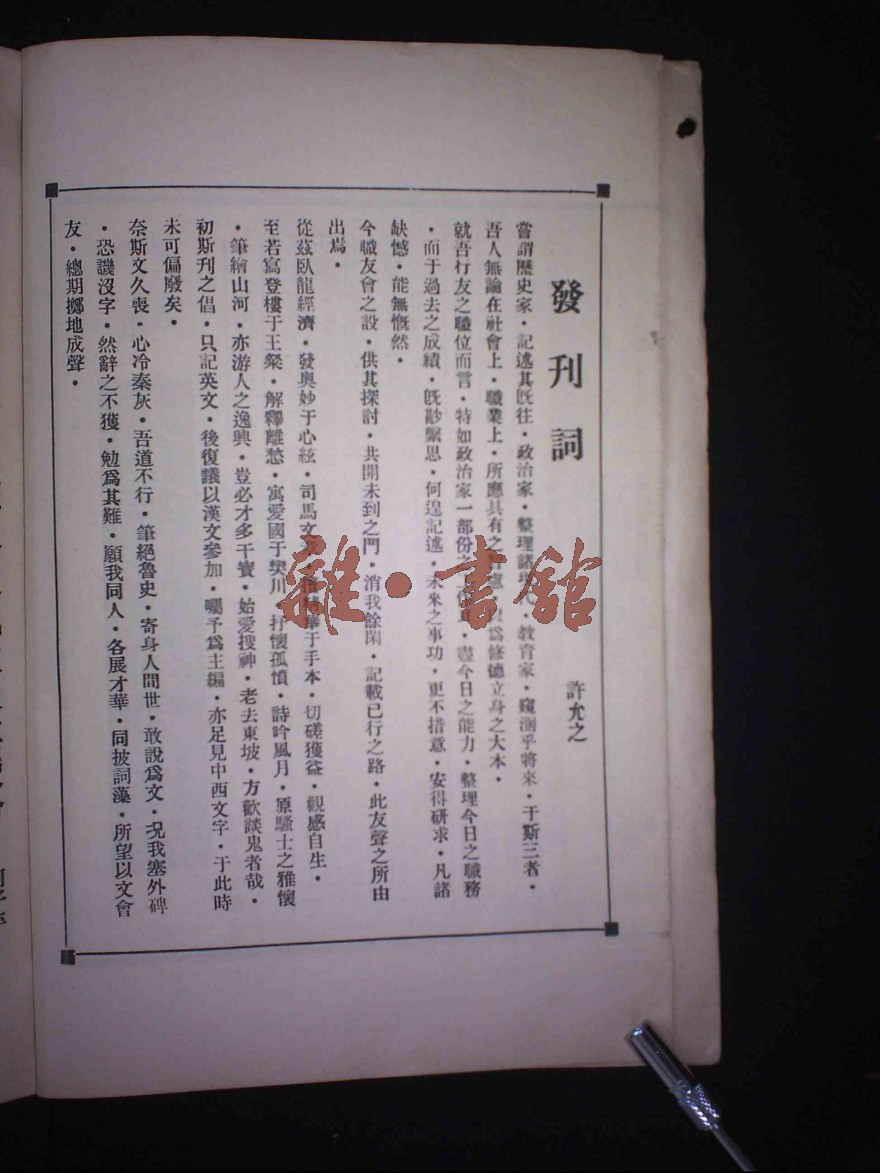 發刊詞
許允之
嘗謂歷史家・記述其旣往・政治家・整理諸現代・敎育家・窺測乎將來・于斯三者・
吾人無論在社會上・職業上・所應具有之 爲修德立身之大本・
就吾行友之職位而言・特如政治家一部份之 盡今日之能力・整理今日之職務
・而于過去之成績・旣尠繫思・何遑記述・未來之事功・更不措意・安得研求・凡諸
缺憾・能無慨然・
今職友會之設・供其探討・共開未到之門・消我餘閑・記載已行之路・此友聲之所由
出焉・
從茲臥龍經濟・發奧妙于心絃・司馬文 華于手本・切磋獲益・觀感自生・
至若寫登樓于王粲・解釋離愁・寓愛國于樊川・抒懷孤憤・詩吟風月・原騷士之雅懷
・筆繪山河・亦游人之逸興・豈必才多干寶・始愛搜神・老去東坡・方歡談鬼者哉・
初斯刊之倡・只記英文・後復議以漢文參加・囑予爲主編・亦足見中西文字・于此時
未可偏廢矣・
奈斯文久喪・心冷秦灰・吾道不行・筆絕魯史・寄身人間世・敢說爲文・況我塞外碑
・恐譏沒字・然辭之不獲・勉爲其難・願我同人・各展才華・同披詞藻・所望以文會
友・總期擲地成聲・
雜・書館